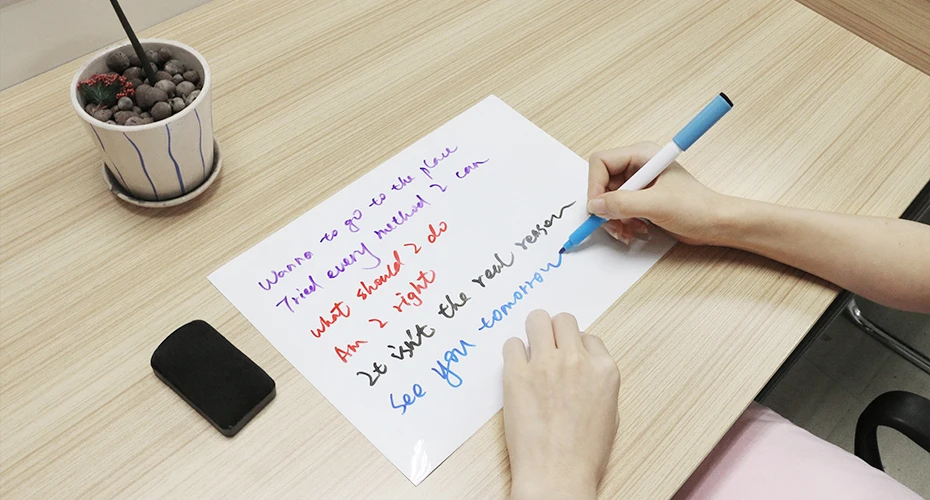 Wanna to go to the place
Tried every method I can
What should I do
Am I right
It isn't the real reason
See you tomorrow